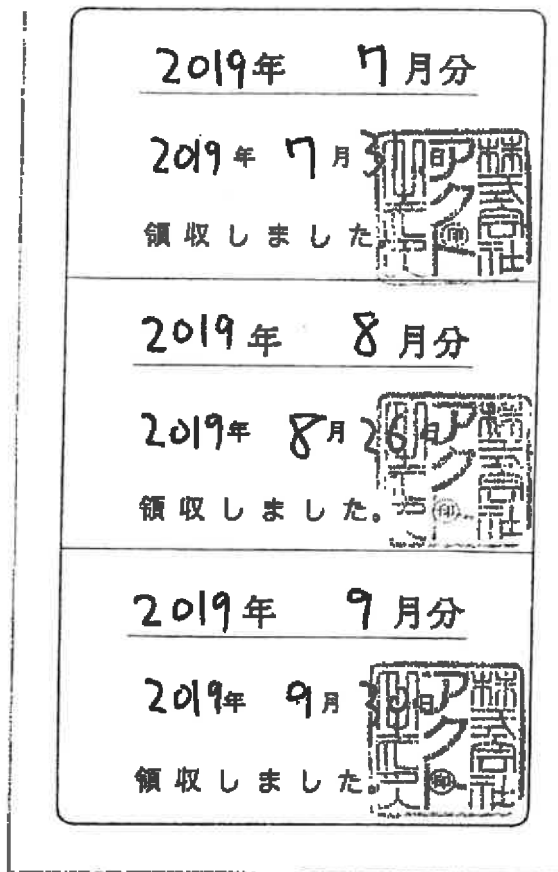 2019年 7月分
2019年 7月3 日
領収しました。
株式会社
アクト
印
2019年 8月分
2019年 8月26日
領収しました。
株式会社
アクト
印
2019年 9月分
2019年 9月30日
領収しました。
株式会社
アクト
印